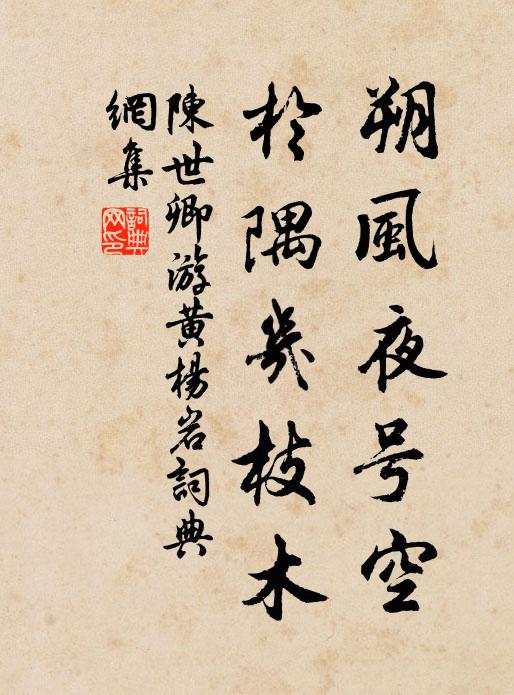 朔風夜号空
於隅幾枝木
陳世卿游黄楊岩詞典
網集
詞典網印